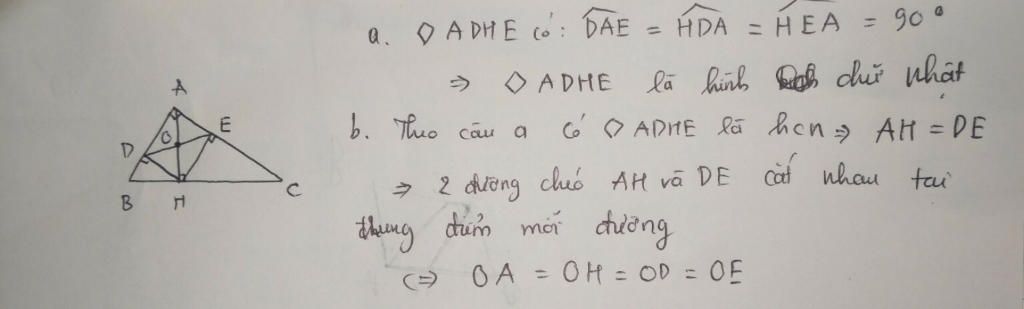 a. ◇ ADHE có: D̂AE = ĤDA = ĤEA = 90°
⇒ ◇ ADHE là hình chữ nhật
b. Theo câu a có ◇ ADHE là hcn ⇒ AH = DE
⇒ 2 đường chéo AH và DE cắt nhau tại
trung điểm mỗi đường
(⇒ OA = OH = OD = OE
A
E
O
D
B
H
C